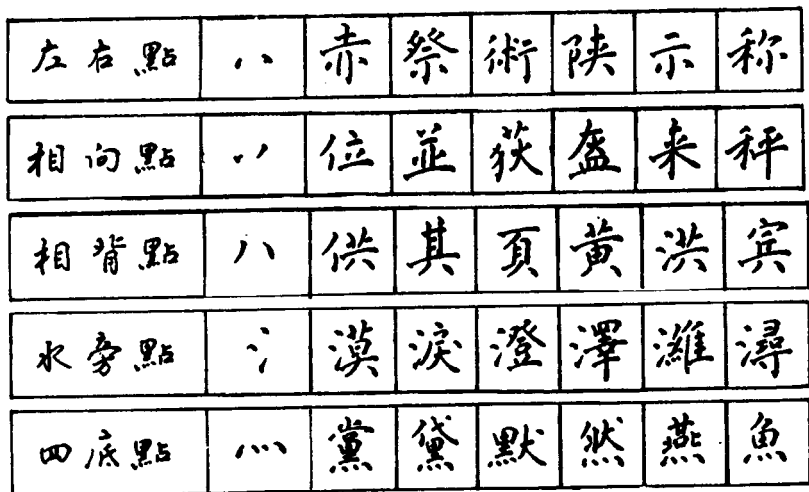 左右點 八 赤 祭 術 陕 示 称
相向點 丷 位 並 荻 盔 来 秤
相背點 八 供 其 頁 黄 洪 宾
水旁點 氵 漠 淚 澄 澤 濰 潯
四底點 灬 黨 黛 默 然 燕 魚